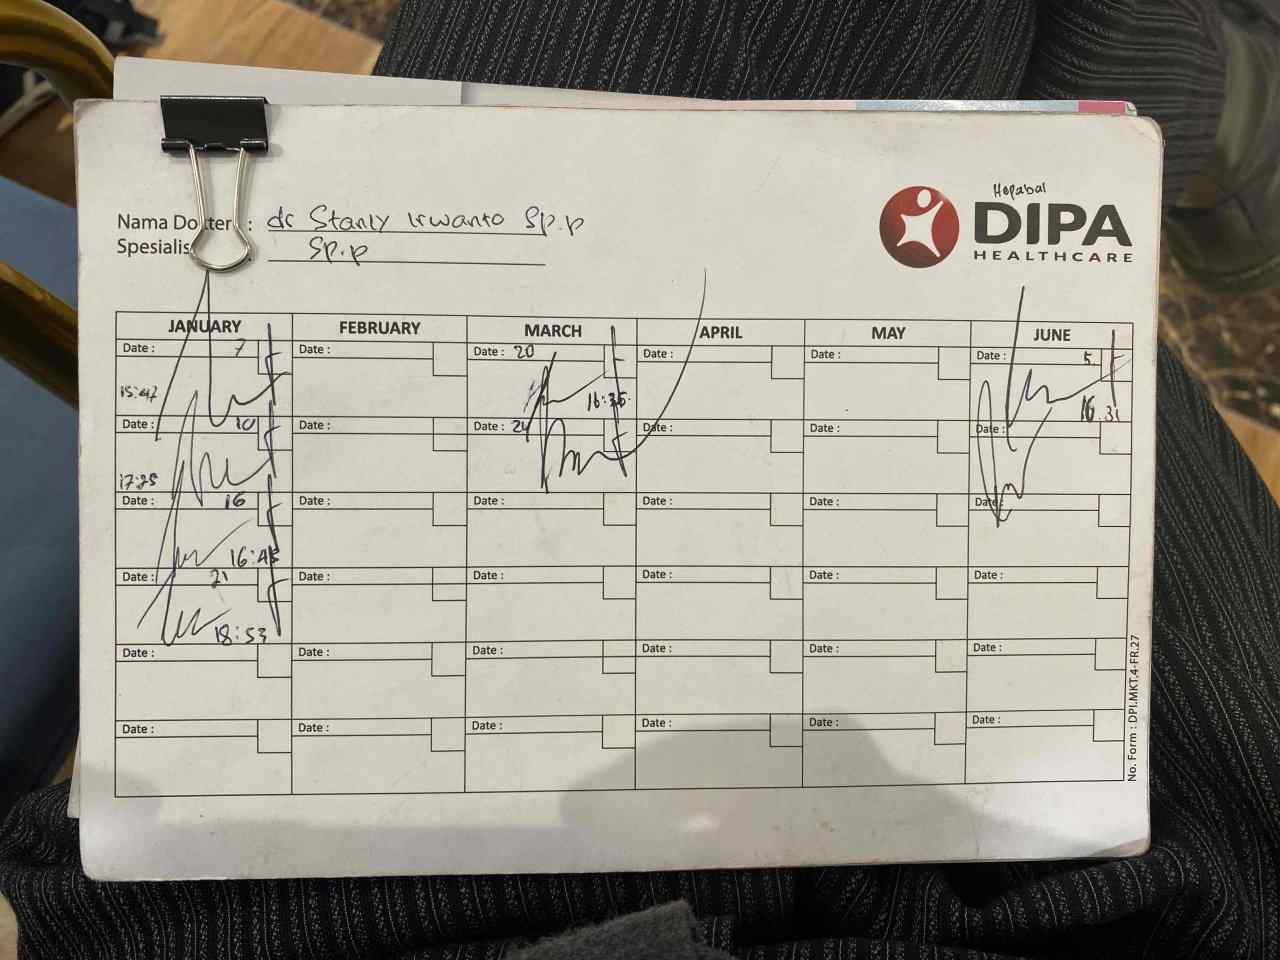 Hepabal
DIPA
HEALTHCARE
Nama Dokter : dr Stanly Irwanto Sp.p
Spesialis : Sp.p
JANUARY FEBRUARY MARCH APRIL MAY JUNE
Date : 7 Date : Date : 20 Date : Date : Date : 5
15:47 16:35 16.31
Date : 10 Date : Date : 24 Date : Date : Date :
17:25
Date : 16 Date : Date : Date : Date : Date :
16:45
Date : 21 Date : Date : Date : Date : Date :
18:53
Date : Date : Date : Date : Date : Date :
Date : Date : Date : Date : Date : Date :
No. Form : DPI.MKT.4-FR.27